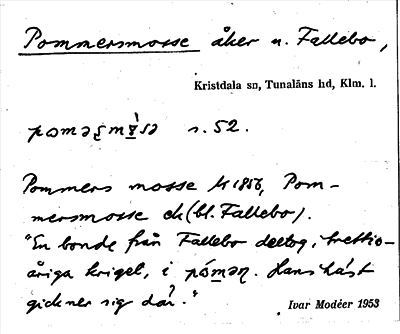 Pommersmosse åker u. Fallebo,
Kristdala sn, Tunaläns hd, Klm. l.
s. 52.
Pommers mosse lk 1856, Pom-
mersmosse ek (bl. Fallebo).
"En bonde från Fallebo deltog i trettio-
åriga kriget, i Hans häst
gick ner sig där."
Ivar Modéer 1953